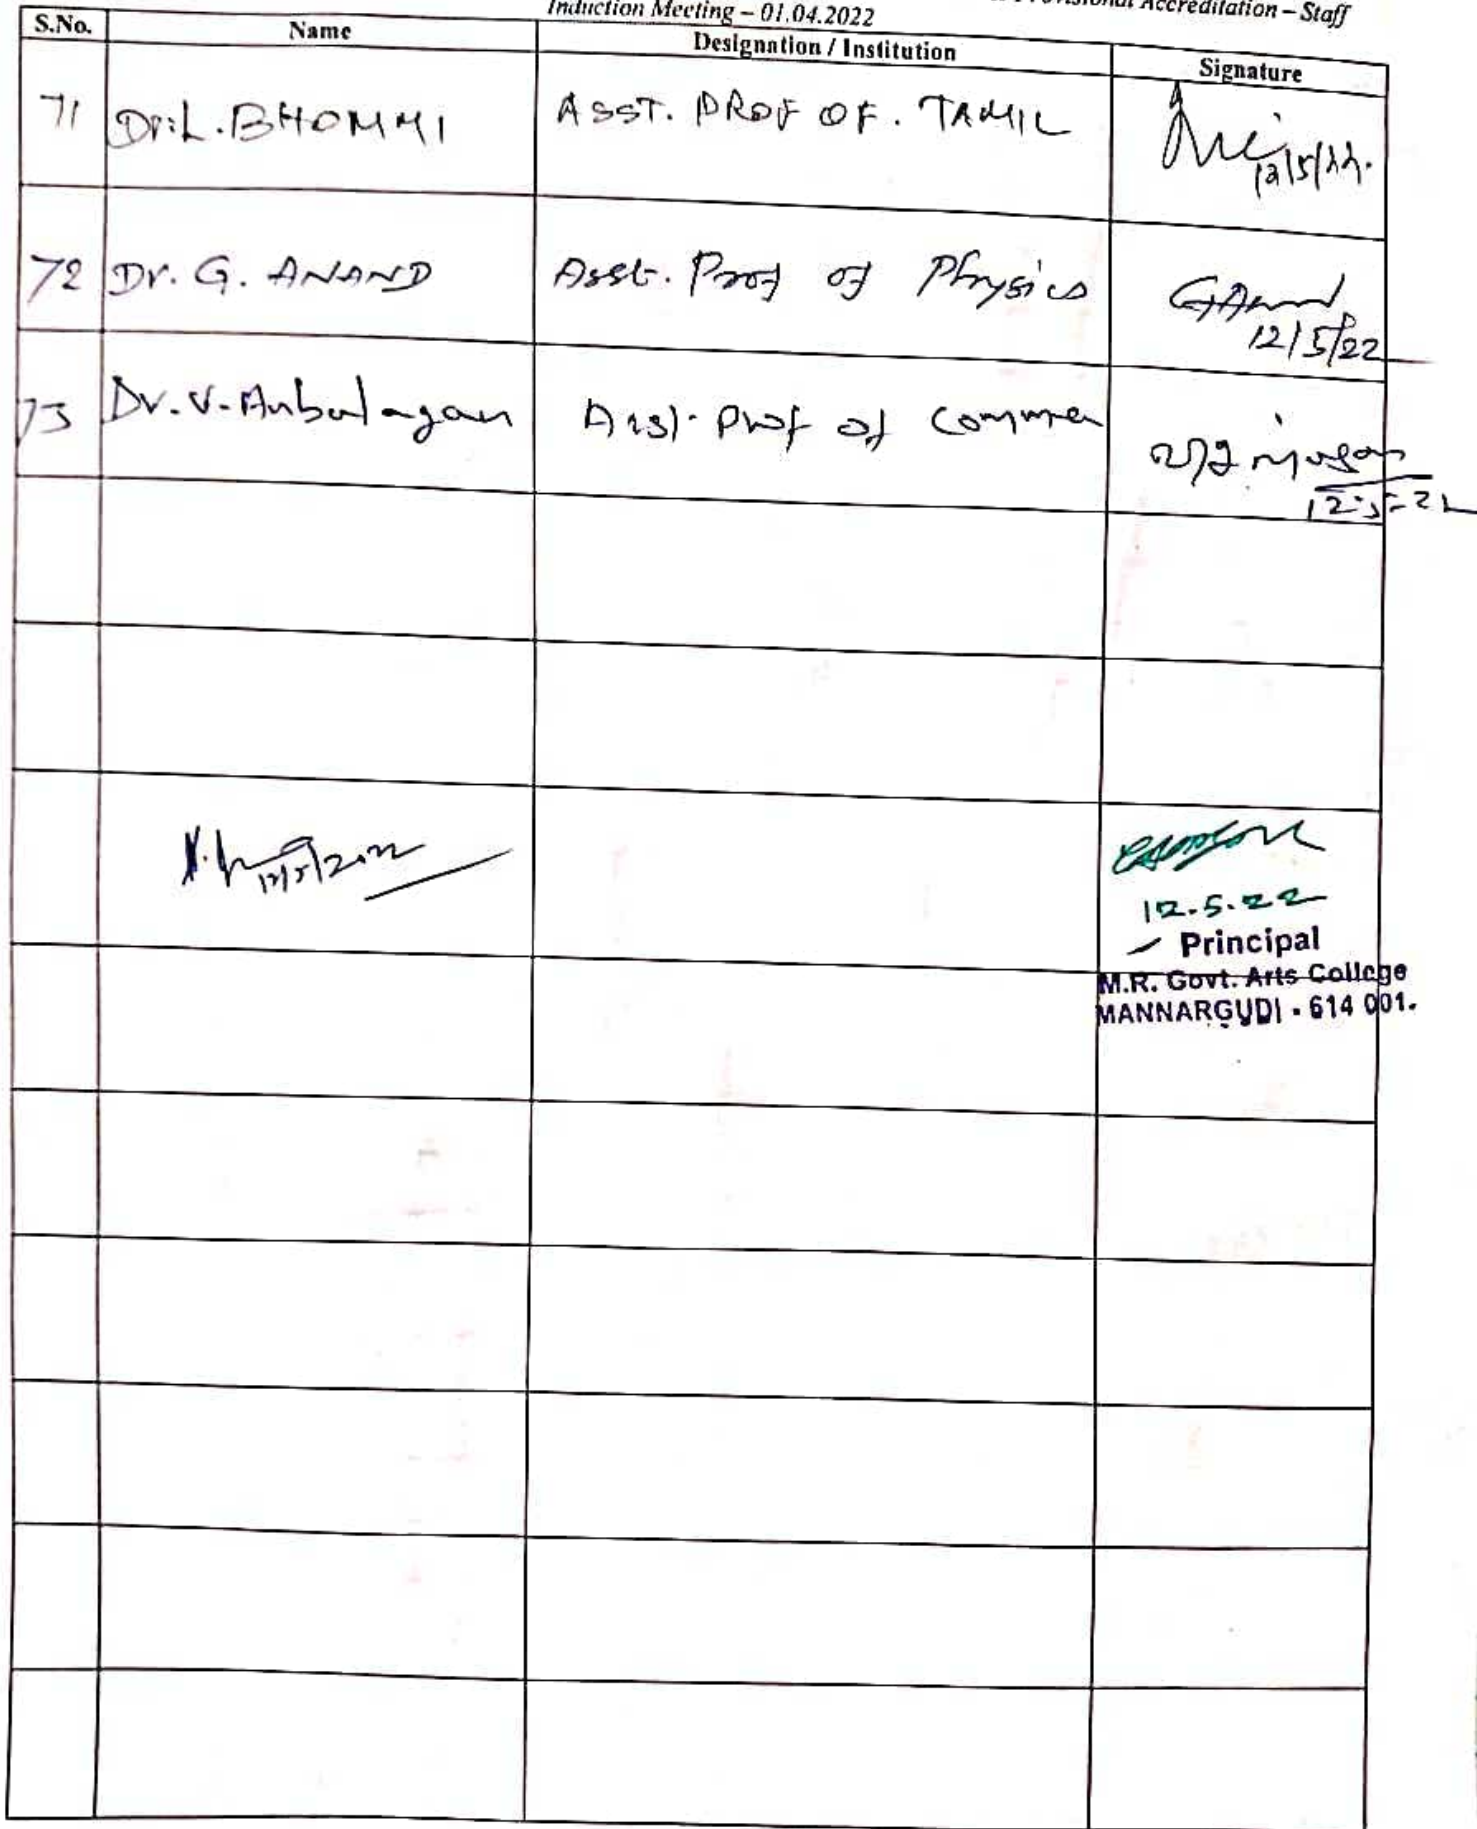 Accreditation – Staff
Induction Meeting – 01.04.2022
S.No. Name Designation / Institution Signature
71 Dr.L.BHOMMI ASST. PROF OF. TAMIL
12/5/22.
72 Dr. G. ANAND Asst. Prof of Physics G.Anand
12/5/22
73 Dr.V.Anbalagan Asst. Prof of Commer
12-5-22
12/5/2022
12.5.22
Principal
M.R. Govt. Arts College
MANNARGUDI - 614 001.